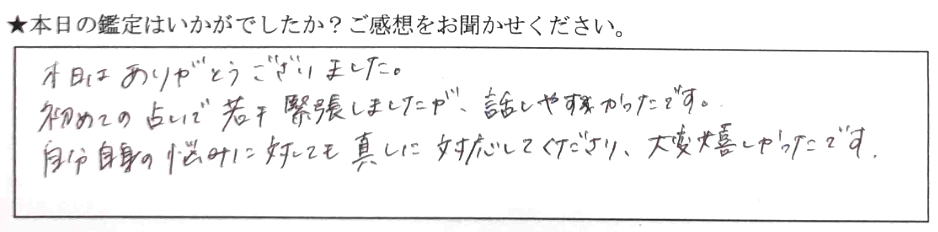 ★本日の鑑定はいかがでしたか？ご感想をお聞かせください。
本日はありがとうございました。
初めての占いで若干緊張しましたが、話しやすかったです。
自分自身の悩みに対しても真しに対応してくださり、大変嬉しかったです.